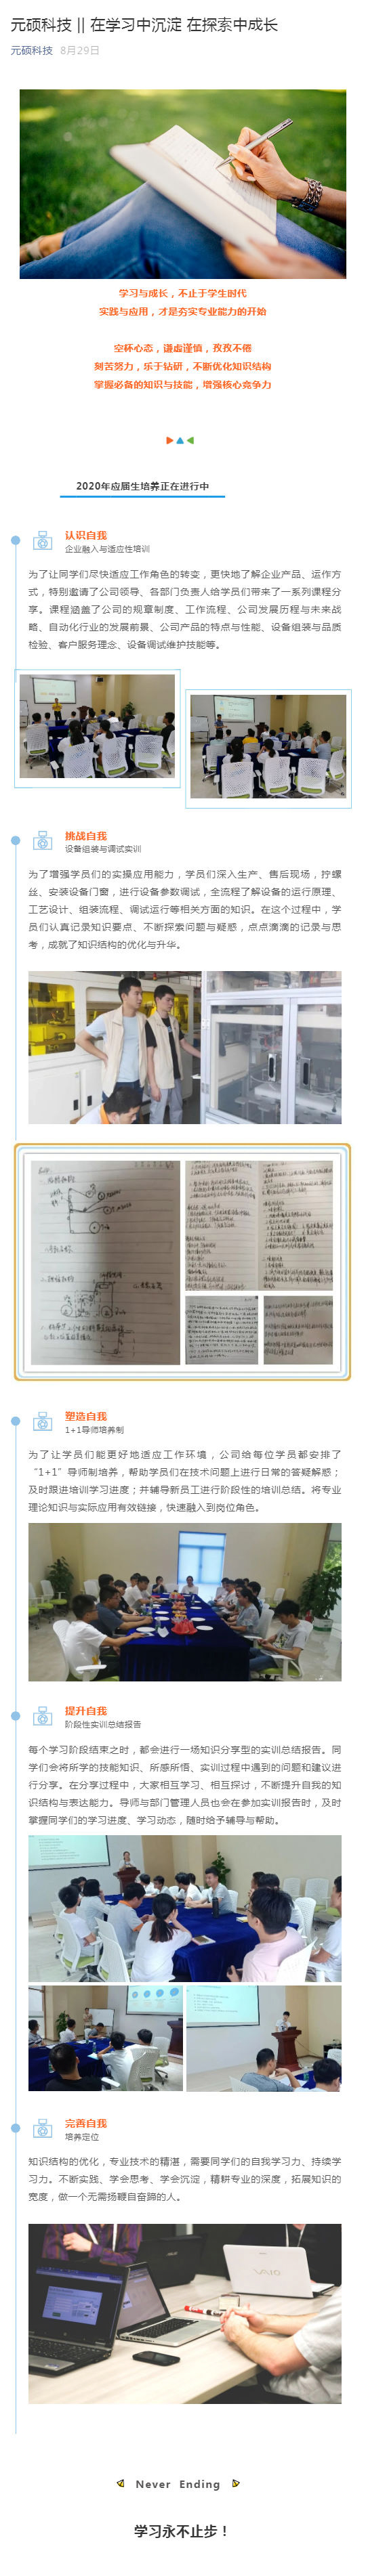 元硕科技 || 在学习中沉淀 在探索中成长
元硕科技 8月29日
学习与成长，不止于学生时代
实践与应用，才是夯实专业能力的开始
空杯心态，谦虚谨慎，孜孜不倦
刻苦努力，乐于钻研，不断优化知识结构
掌握必备的知识与技能，增强核心竞争力
2020年应届生培养正在进行中
认识自我
企业融入与适应性培训
为了让同学们尽快适应工作角色的转变，更快地了解企业产品、运作方
式，特别邀请了公司领导、各部门负责人给学员们带来了一系列课程分
享。课程涵盖了公司的规章制度、工作流程、公司发展历程与未来战
略、自动化行业的发展前景、公司产品的特点与性能、设备组装与品质
检验、客户服务理念、设备调试维护技能等。
挑战自我
设备组装与调试实训
为了增强学员们的实操应用能力，学员们深入生产、售后现场，拧螺
丝、安装设备门窗，进行设备参数调试，全流程了解设备的运行原理、
工艺设计、组装流程、调试运行等相关方面的知识。在这个过程中，学
员们认真记录知识要点、不断探索问题与疑惑，点点滴滴的记录与思
考，成就了知识结构的优化与升华。
塑造自我
1+1导师培养制
为了让学员们能更好地适应工作环境，公司给每位学员都安排了
“1+1”导师制培养，帮助学员们在技术问题上进行日常的答疑解惑；
及时跟进培训学习进度；并辅导新员工进行阶段性的培训总结。将专业
理论知识与实际应用有效链接，快速融入到岗位角色。
提升自我
阶段性实训总结报告
每个学习阶段结束之时，都会进行一场知识分享型的实训总结报告。同
学们会将所学的技能知识、所感所悟、实训过程中遇到的问题和建议进
行分享。在分享过程中，大家相互学习、相互探讨，不断提升自我的知
识结构与表达能力。导师与部门管理人员也会在参加实训报告时，及时
掌握同学们的学习进度、学习动态，随时给予辅导与帮助。
完善自我
培养定位
知识结构的优化，专业技术的精湛，需要同学们的自我学习力、持续学
习力。不断实践、学会思考、学会沉淀，精耕专业的深度，拓展知识的
宽度，做一个无需扬鞭自奋蹄的人。
VAIO
Never Ending
学习永不止步！